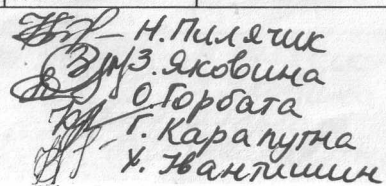 Н. Пилячик
З. Яковина
О. Горбата
Г. Карапутна
Х. Івантишин